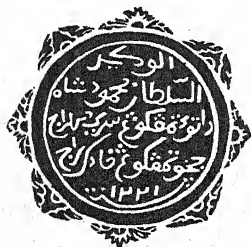 الوكيل
السلطان محمود شاه
داتق تمڠكوڠ سري مهراج
چوچو تمڠكوڠ فادك راج
سنة ١٢٢١